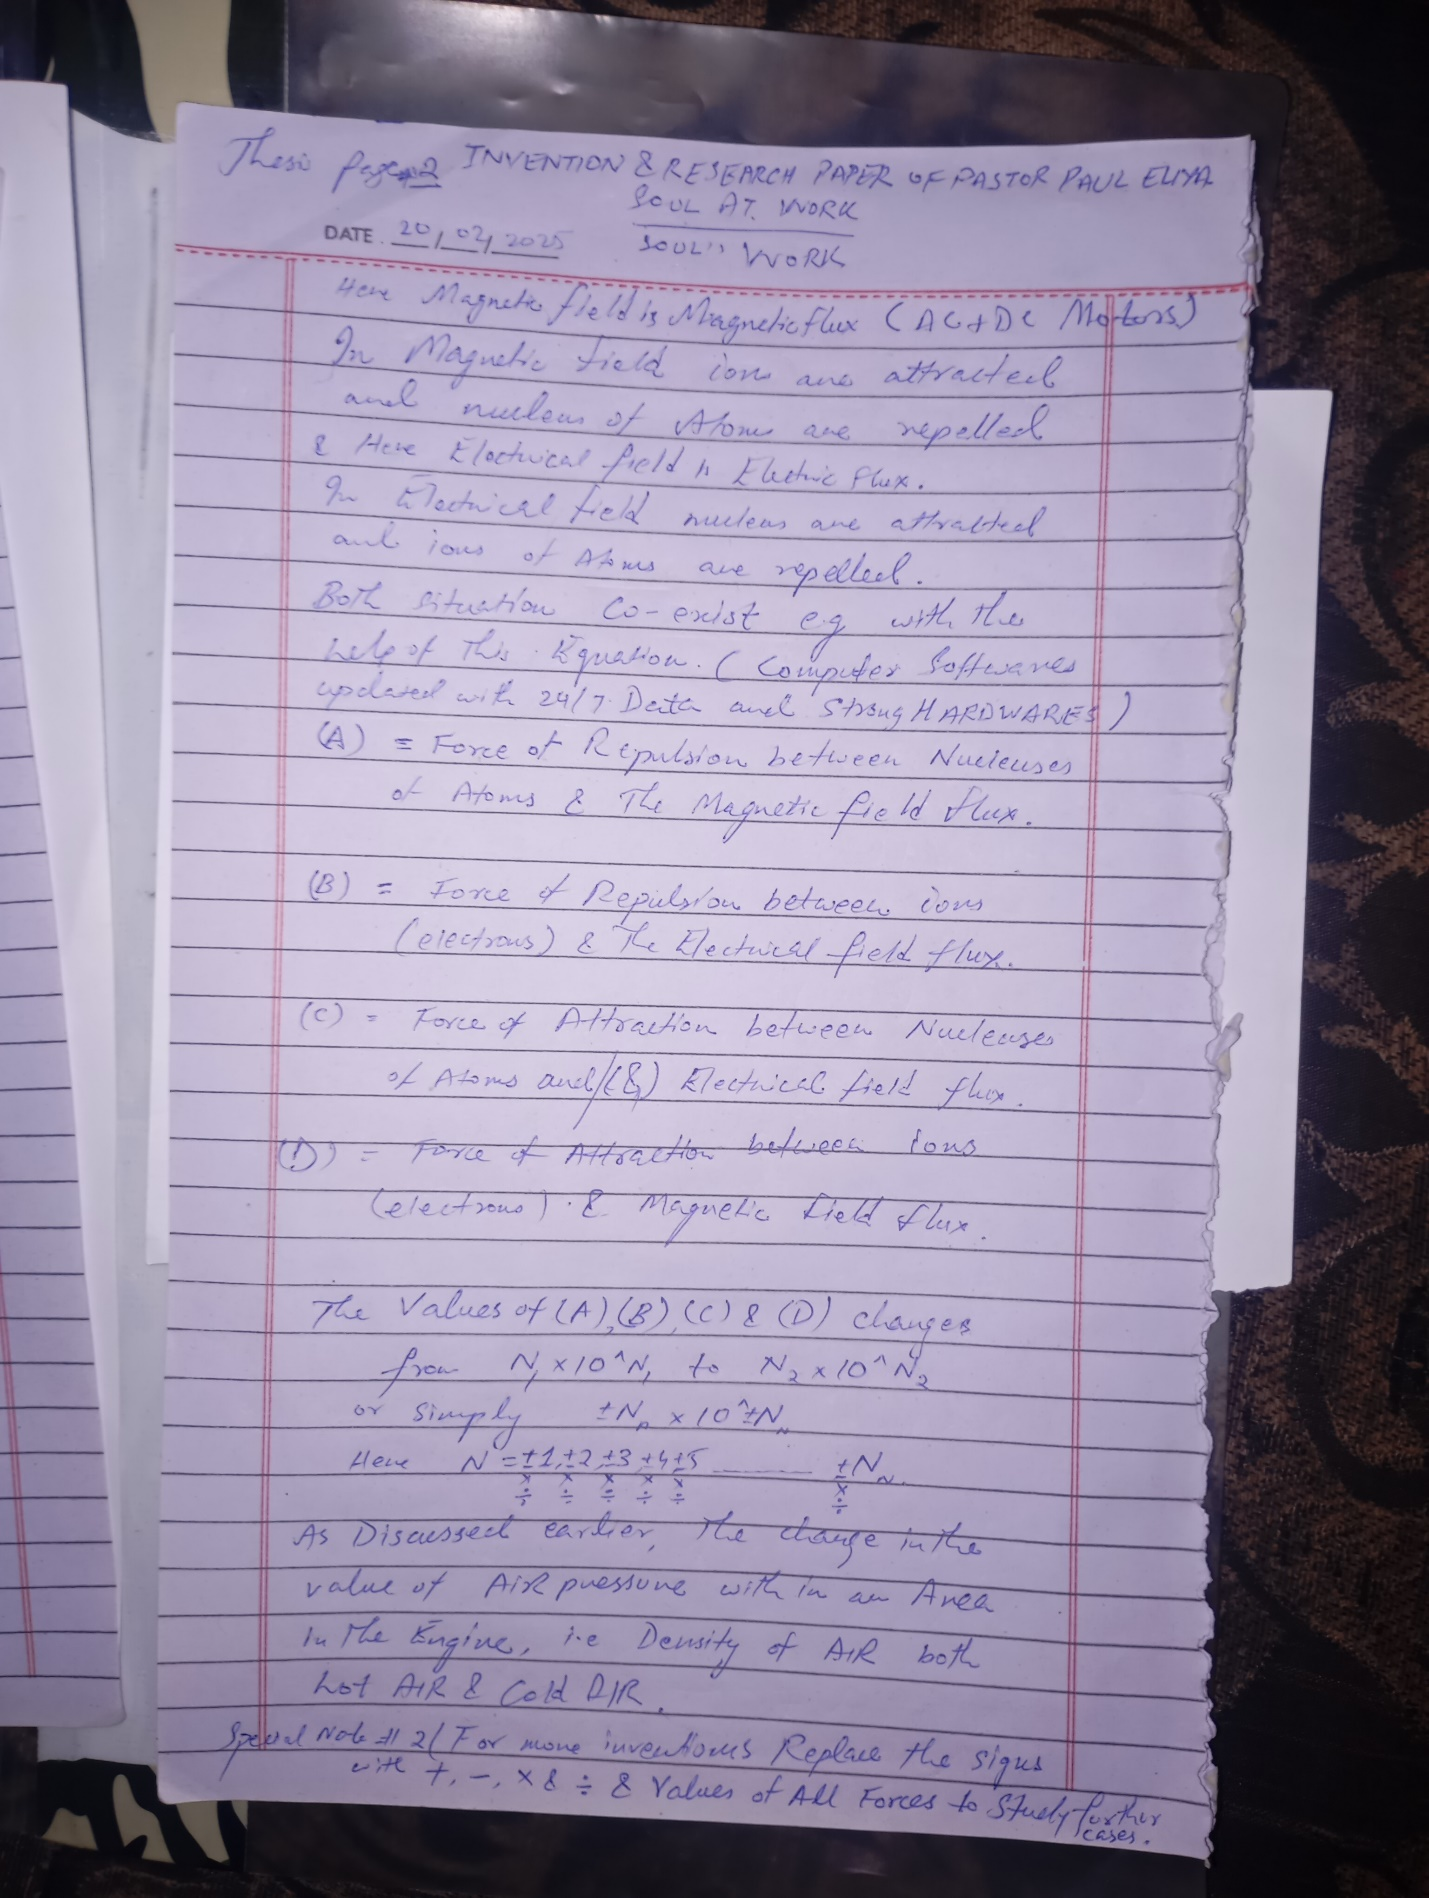 Thesis page 2 INVENTION & RESEARCH PAPER OF PASTOR PAUL ELIYA
SOUL AT WORK
DATE. 20/02/2025 SOUL'S WORK
Here Magnetic field is Magnetic flux (AC+DC Motors)
In Magnetic field ions are attracted
and nucleus of Atoms are repelled
& Here Electrical field is Electric flux.
In Electrical field nucleus are attracted
and ions of Atoms are repelled.
Both situation Co-exist e.g with the
help of This Equation. (Computer Softwares
updated with 24/7 Data and Strong HARDWARES)
(A) = Force of Repulsion between Nucleuses
of Atoms & The Magnetic field flux.
(B) = Force of Repulsion between ions
(electrons) & The Electrical field flux.
(C) = Force of Attraction between Nucleuses
of Atoms and/(&) Electrical field flux.
(D) = Force of Attraction between ions
(electrons) & Magnetic field flux.
The Values of (A),(B),(C) & (D) changes
from N₁ x 10^N₁ to N₂ x 10^N₂
or simply ±Nₙ x 10^±Nₙ
Here N = ±1, ±2 ±3 ±4 ±5 ........ ±Nₙ.
× × × × × ×
÷ ÷ ÷ ÷ ÷ ÷
As Discussed earlier, The change in the
value of AIR pressure with in an Area
in The Engine, i.e Density of AIR both
hot AIR & Cold AIR.
Special Note # 2 (For more inventions Replace the signs
with +, -, × & ÷ & Values of All Forces to Study further
cases.